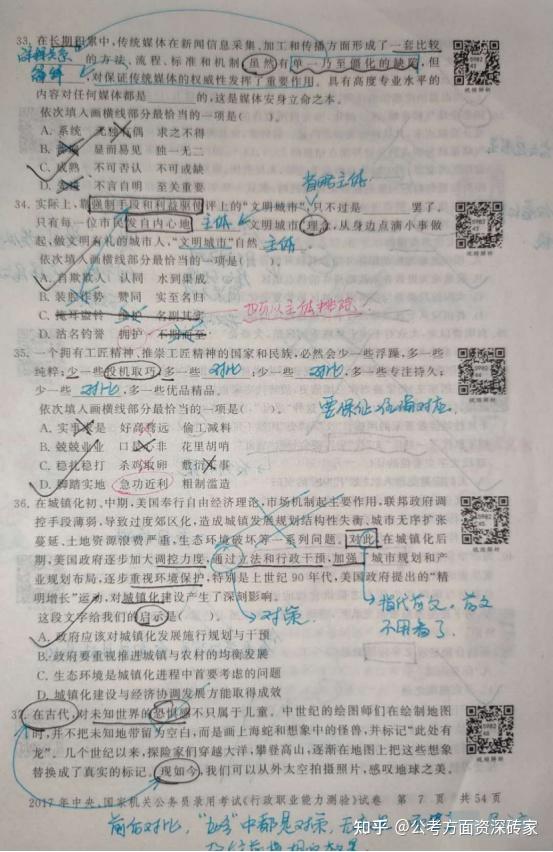 33. 在长期积累中,传统媒体在新闻信息采集、加工和传播方面形成了一套比较
的方法、流程、标准和机制,虽然有单一乃至僵化的缺陷,但
,对保证传统媒体的权威性发挥了重要作用。具有高度专业水平的
内容对任何媒体都是________的,这是媒体安身立命之本。
依次填入画横线部分最恰当的一项是( )。
A. 系统 无独有偶 求之不得
B. 显而易见 独一无二
C. 成熟 不可否认 不可或缺
D. 不言自明 至关重要
省略主体
34. 实际上,靠强制手段和利益驱使评上的“文明城市”,只不过是________罢了,
只有每一位市民发自内心地 主体 “文明城市”理念,从身边点滴小事做
起,做文明有礼的城市人,“文明城市”自然 主体
依次填入画横线部分最恰当的一项是( )。
A. 自欺欺人 认同 水到渠成
B. 装腔作势 赞同 实至名归
C. 掩耳盗铃 名副其实
D. 沽名钓誉 拥护 不期而至
35. 一个拥有工匠精神、推崇工匠精神的国家和民族,必然会少一些浮躁,多一些
纯粹;少一些投机取巧,多一些 对比 ;少一些 对比 ,多一些专注持久;
少一些 对比 ,多一些优品精品。
依次填入画横线部分最恰当的一项是( )。
A. 实事求是 好高骛远 偷工减料
B. 兢兢业业 口是心非 花里胡哨
C. 稳扎稳打 杀鸡取卵 敷衍了事
D. 脚踏实地 急功近利 粗制滥造
36. 在城镇化初、中期,美国奉行自由经济理念,市场机制起主要作用,联邦政府调
控手段薄弱,导致过度郊区化,造成城镇发展规划结构性失衡、城市无序扩张
蔓延、土地资源浪费严重、生态环境破坏等一系列问题。对此,在城镇化后
期,美国政府逐步加大调控力度,通过立法和行政干预,加强了城市规划和产
业规划布局,逐步重视环境保护,特别是上世纪90年代,美国政府提出的“精
明增长”运动,对城镇化建设产生了深刻影响。
这段文字给我们的启示是( )。
对策
指代前文,前文
不用看了
A. 政府应该对城镇化发展施行规划与干预
B. 政府要重视推进城镇与农村的均衡发展
C. 生态环境是城镇化进程中首要考虑的问题
D. 城镇化建设与经济协调发展方能取得成效
37. 在古代,对未知世界的恐惧感不只属于儿童。中世纪的绘图师们在绘制地图
时,并不把未知地带留为空白,而是画上海蛇和想象中的怪兽,并标记“此处有
龙”。几个世纪以来,探险家们穿越大洋,攀登高山,逐渐在地图上把这些想象
替换成了真实的标记。现如今,我们可以从外太空拍摄照片,感叹地球之美。
2017年中央、国家机关公务员录用考试《行政职业能力测验》试卷 第 7 页 共54页
知乎 @公考方面资深砖家